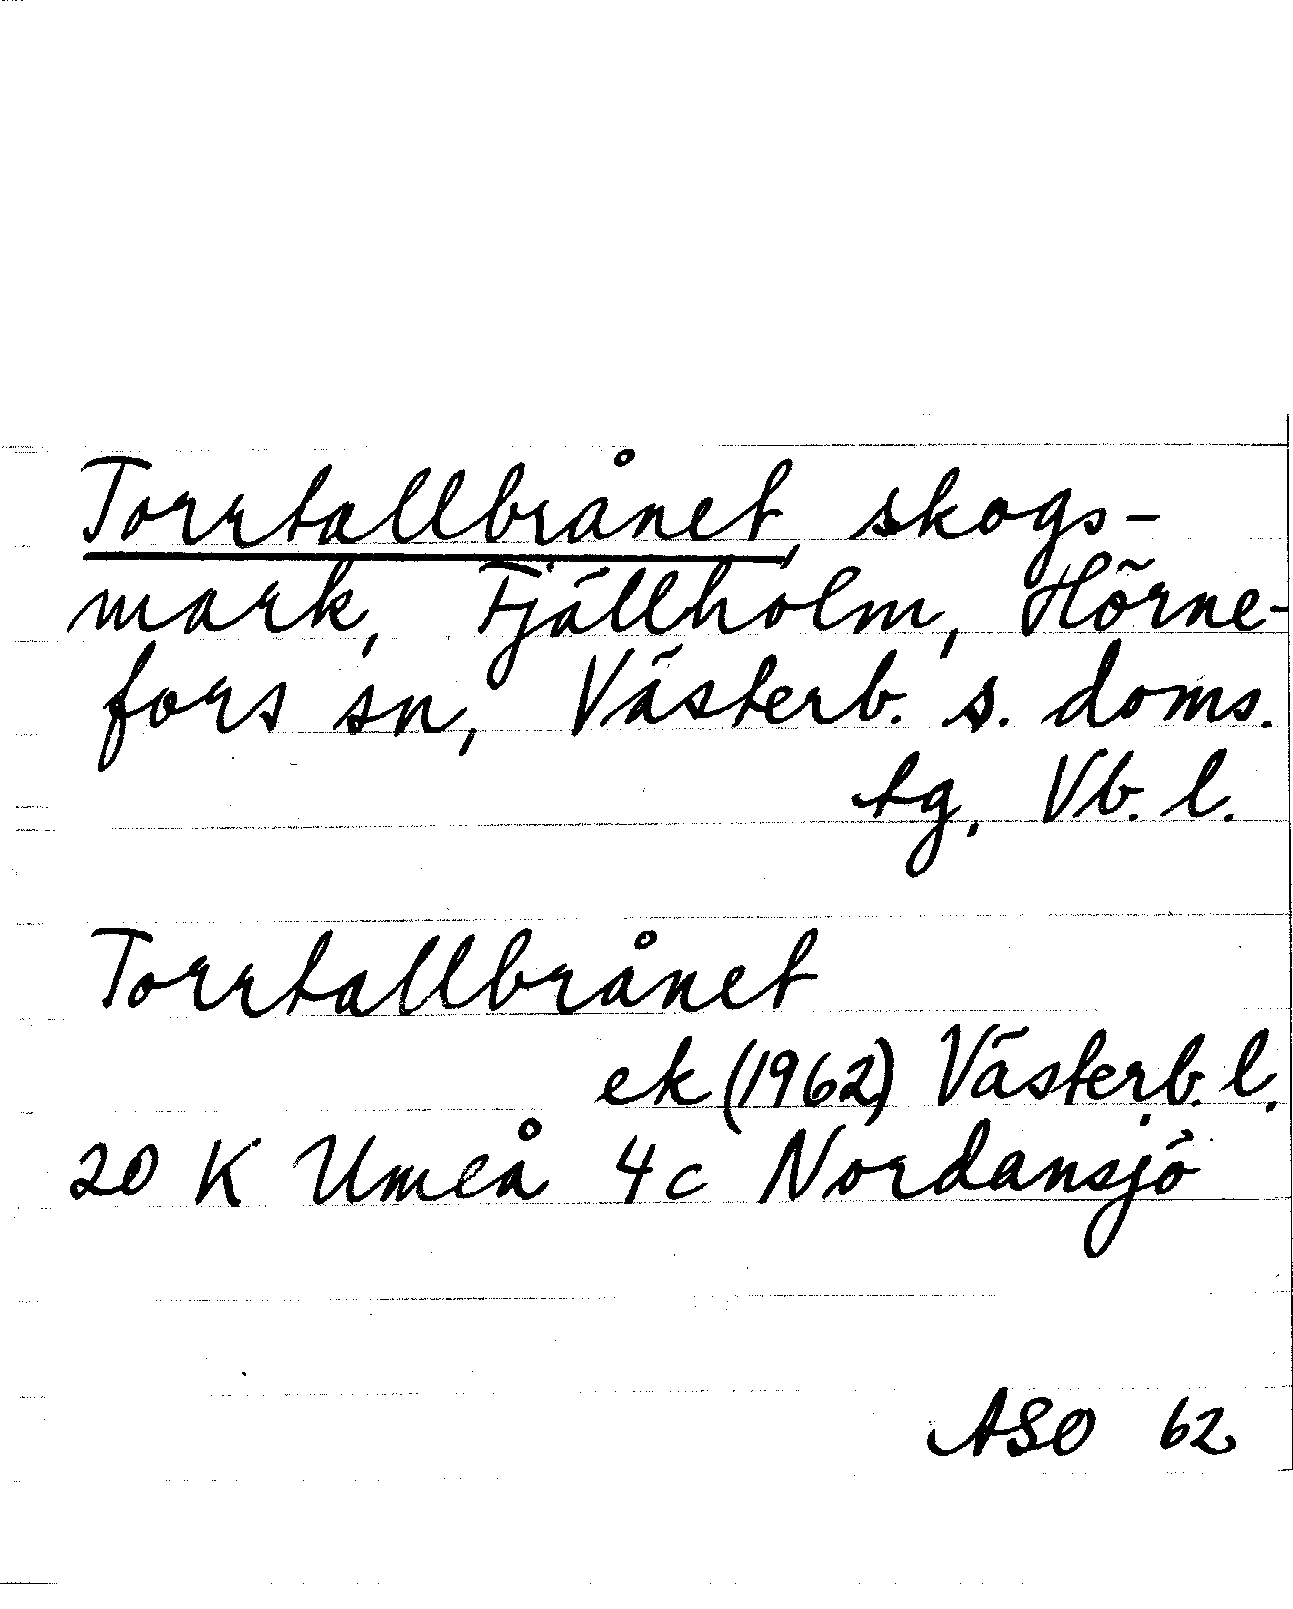 Torrtallbrånet, skogs-
mark, Fjällholm, Hörne-
fors sn, Västerb. s. doms.
tg, Vb. l.
Torrtallbrånet
ek (1962) Västerb. l.
20 K Umeå 4c Nordansjö
ASO 62